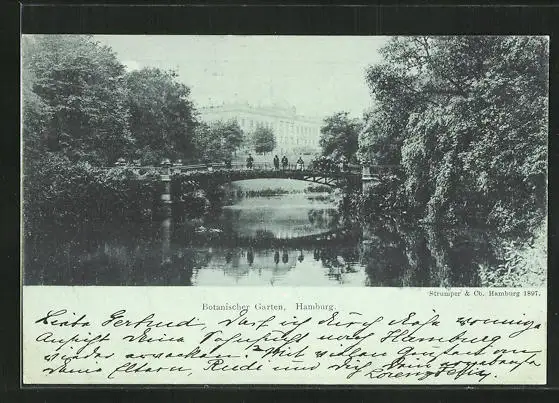 Strumper & Co. Hamburg 1897.
Botanischer Garten, Hamburg.
Liebe Gertrud, Darf ich durch diese wonnige
Ansicht Deine Sehnsucht nach Hamburg
wieder erwecken? Mit vielen Grüßen an
Deine Eltern, und Dich Dein
Lorenz